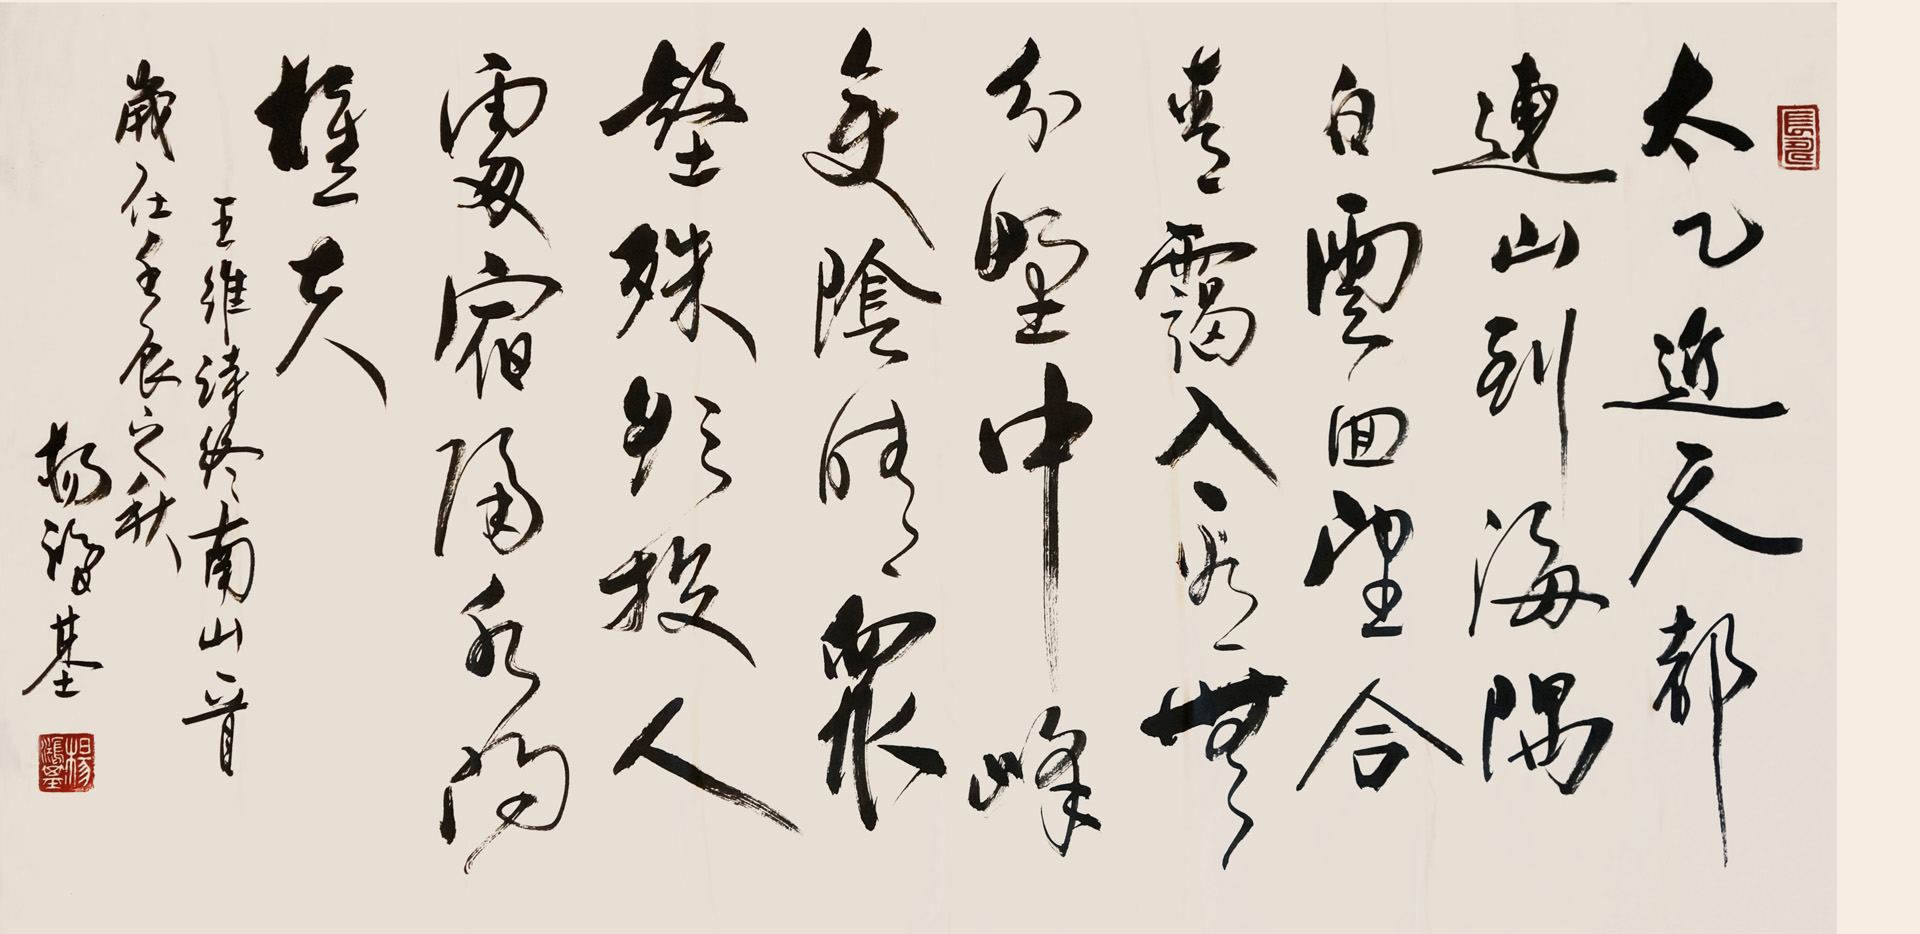 太乙近天都
連山到海隅
白雲迴望合
青靄入看無
分野中峰
變陰晴眾
壑殊欲投人
處宿隔水問
樵夫
王維詩終南山一首
歲在壬辰之秋
楊鴻基
楊鴻基